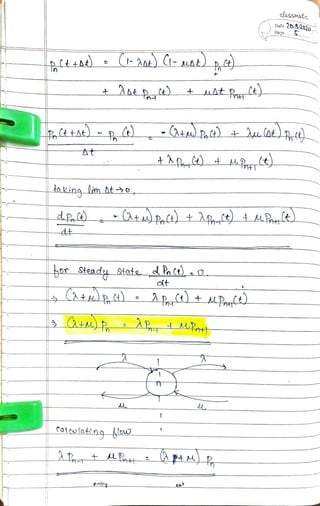 classmate
Date 20.8.2020
Page 5
Pn(t+Δt) = (1-λΔt) (1-μΔt) Pn(t)
+ λΔt Pn-1(t) + μΔt Pn+1(t)
Pn(t+Δt) - Pn(t) / Δt = -(λ+μ) Pn(t) + λμ(Δt) Pn(t)
+ λ Pn-1(t) + μ Pn+1(t)
taking lim Δt→0,
dPn(t)/dt = -(λ+μ) Pn(t) + λ Pn-1(t) + μ Pn+1(t)
for steady state, dPn(t)/dt = 0.
⇒ (λ+μ) Pn(t) = λ Pn-1(t) + μ Pn+1(t)
⇒ (λ+μ) Pn = λ Pn-1 + μ Pn+1
λ λ
n
μ μ
calculating flow
λ Pn-1 + μ Pn+1 = (λ + μ) Pn
entry exit